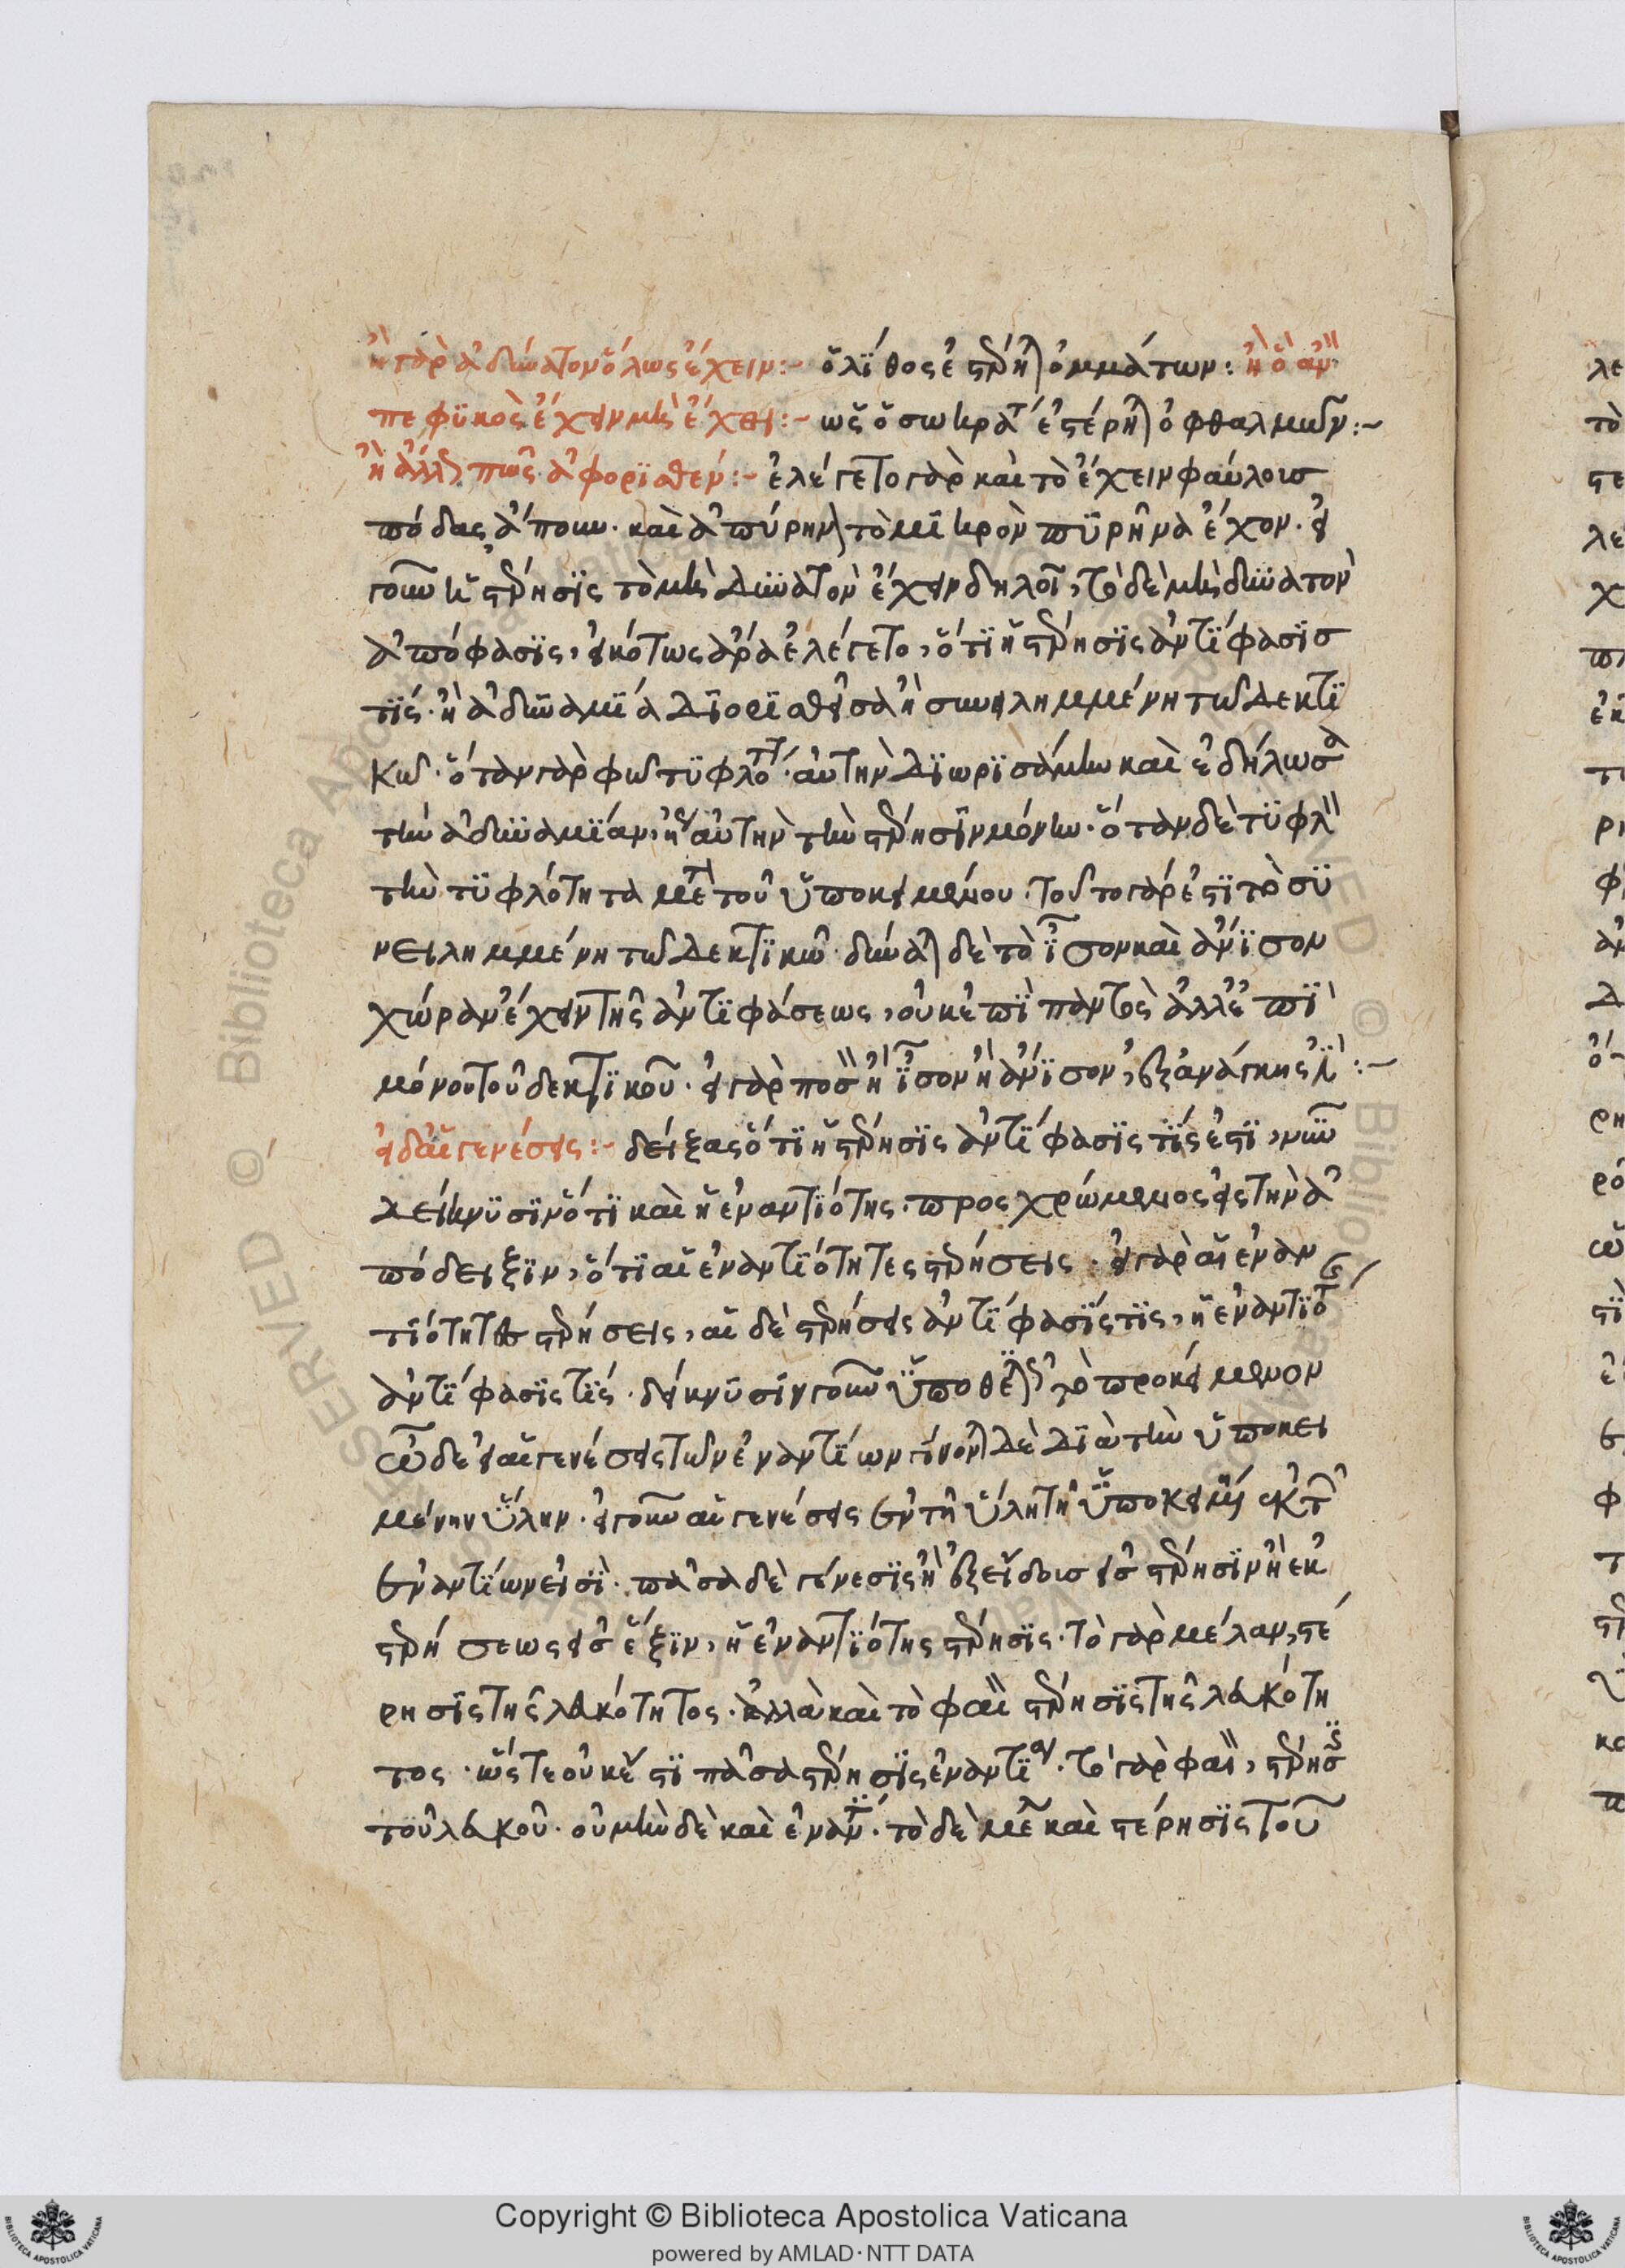 ἢ γὰρ ἀδύνατον ὅλως ἔχειν:– ὁ λίθος ἐστέρηται ὀμμάτων: ἢ ὃ ἂν
πεφυκὸς ἔχειν μὴ ἔχει:– ὡς ὁ σωκράτης ἐστέρηται ὀφθαλμῶν:–
ἢ ἄλλως πως ἀφορισθέν:– ἐλέγετο γὰρ καὶ τὸ ἔχειν φαύλους
πόδας, ἄπουν· καὶ ἀπύρηνον τὸ μικρὸν πυρῆνα ἔχον· εἰ
γοῦν ἡ στέρησις τὸ μὴ δυνατὸν ἔχειν δηλοῖ, τὸ δὲ μὴ δυνατὸν
ἀπόφασις, εἰκότως ἄρα ἐλέγετο, ὅτι ἡ στέρησις ἀντίφασίς
τις· ἢ ἀδυναμία διορισθεῖσα ἢ συνειλημμένη τῶ δεκτι
κῶ· ὅταν γὰρ φῶ τυφλότης· αὐτὴν διωρισάμην καὶ ἐδήλωσα
τὴν ἀδυναμίαν, αὐτὴν τὴν στέρησιν μόνην· ὅταν δὲ τυφλὸν
τὴν τυφλότητα μετὰ τοῦ ὑποκειμένου· τοῦτο γάρ ἐστι τὸ συ
νειλημμένη τῶ δεκτικῶ· δύναται δὲ τὸ ἴσον καὶ ἄνισον
χώραν ἔχειν τῆς ἀντιφάσεως, οὐκ ἐπὶ παντὸς ἀλλ' ἐπὶ
μόνου τοῦ δεκτικοῦ· εἰ γὰρ ποσὸν ἢ ἴσον ἢ ἄνισον, ἐξ ἀνάγκης ἐστί:–
εἰ δ' αἱ γενέσεις:– δείξας ὅτι ἡ στέρησις ἀντίφασίς τίς ἐστι, νῦν
δείκνυσιν ὅτι καὶ ἡ ἐναντιότης· προσχρώμενος εἰς τὴν ἀ
πόδειξιν, ὅτι αἱ ἐναντιότητες στερήσεις· εἰ γὰρ αἱ ἐναν
τιότητες στερήσεις, αἱ δὲ στερήσεις ἀντίφασίς τις, ἡ ἐναντιότης
ἀντίφασίς τίς· δείκνυσιν γοῦν ὑποθετικῶς τὸ προκείμενον
ὧδε· εἰ αἱ γενέσεις τῶν ἐναντίων γίνονται δὲ διὰ τὴν ὑποκει
μένην ὕλην· εἰ γοῦν αἱ γενέσεις ἐν τῆ ὕλη τῆ ὑποκειμένη ἐκ τῶν
ἐναντίων εἰσὶ· πᾶσα δὲ γένεσις ἢ ἐξ εἴδους εἰς στέρησιν ἢ ἐκ
στερήσεως εἰς ἕξιν, ἡ ἐναντιότης στέρησις· τὸ γὰρ μέλαν, στέ
ρησις τῆς λευκότητος· ἀλλὰ καὶ τὸ φαιὸν στέρησις τῆς λευκότη
τος· ὥστε οὐκ ἔστι πᾶσα στέρησις ἐναντία· τὸ γὰρ φαιὸν, στέρησις
τοῦ λευκοῦ· οὐ μὴν δὲ καὶ ἐναντίον· τὸ δὲ μέλαν καὶ στέρησις τοῦ
Copyright © Biblioteca Apostolica Vaticana
powered by AMLAD·NTT DATA